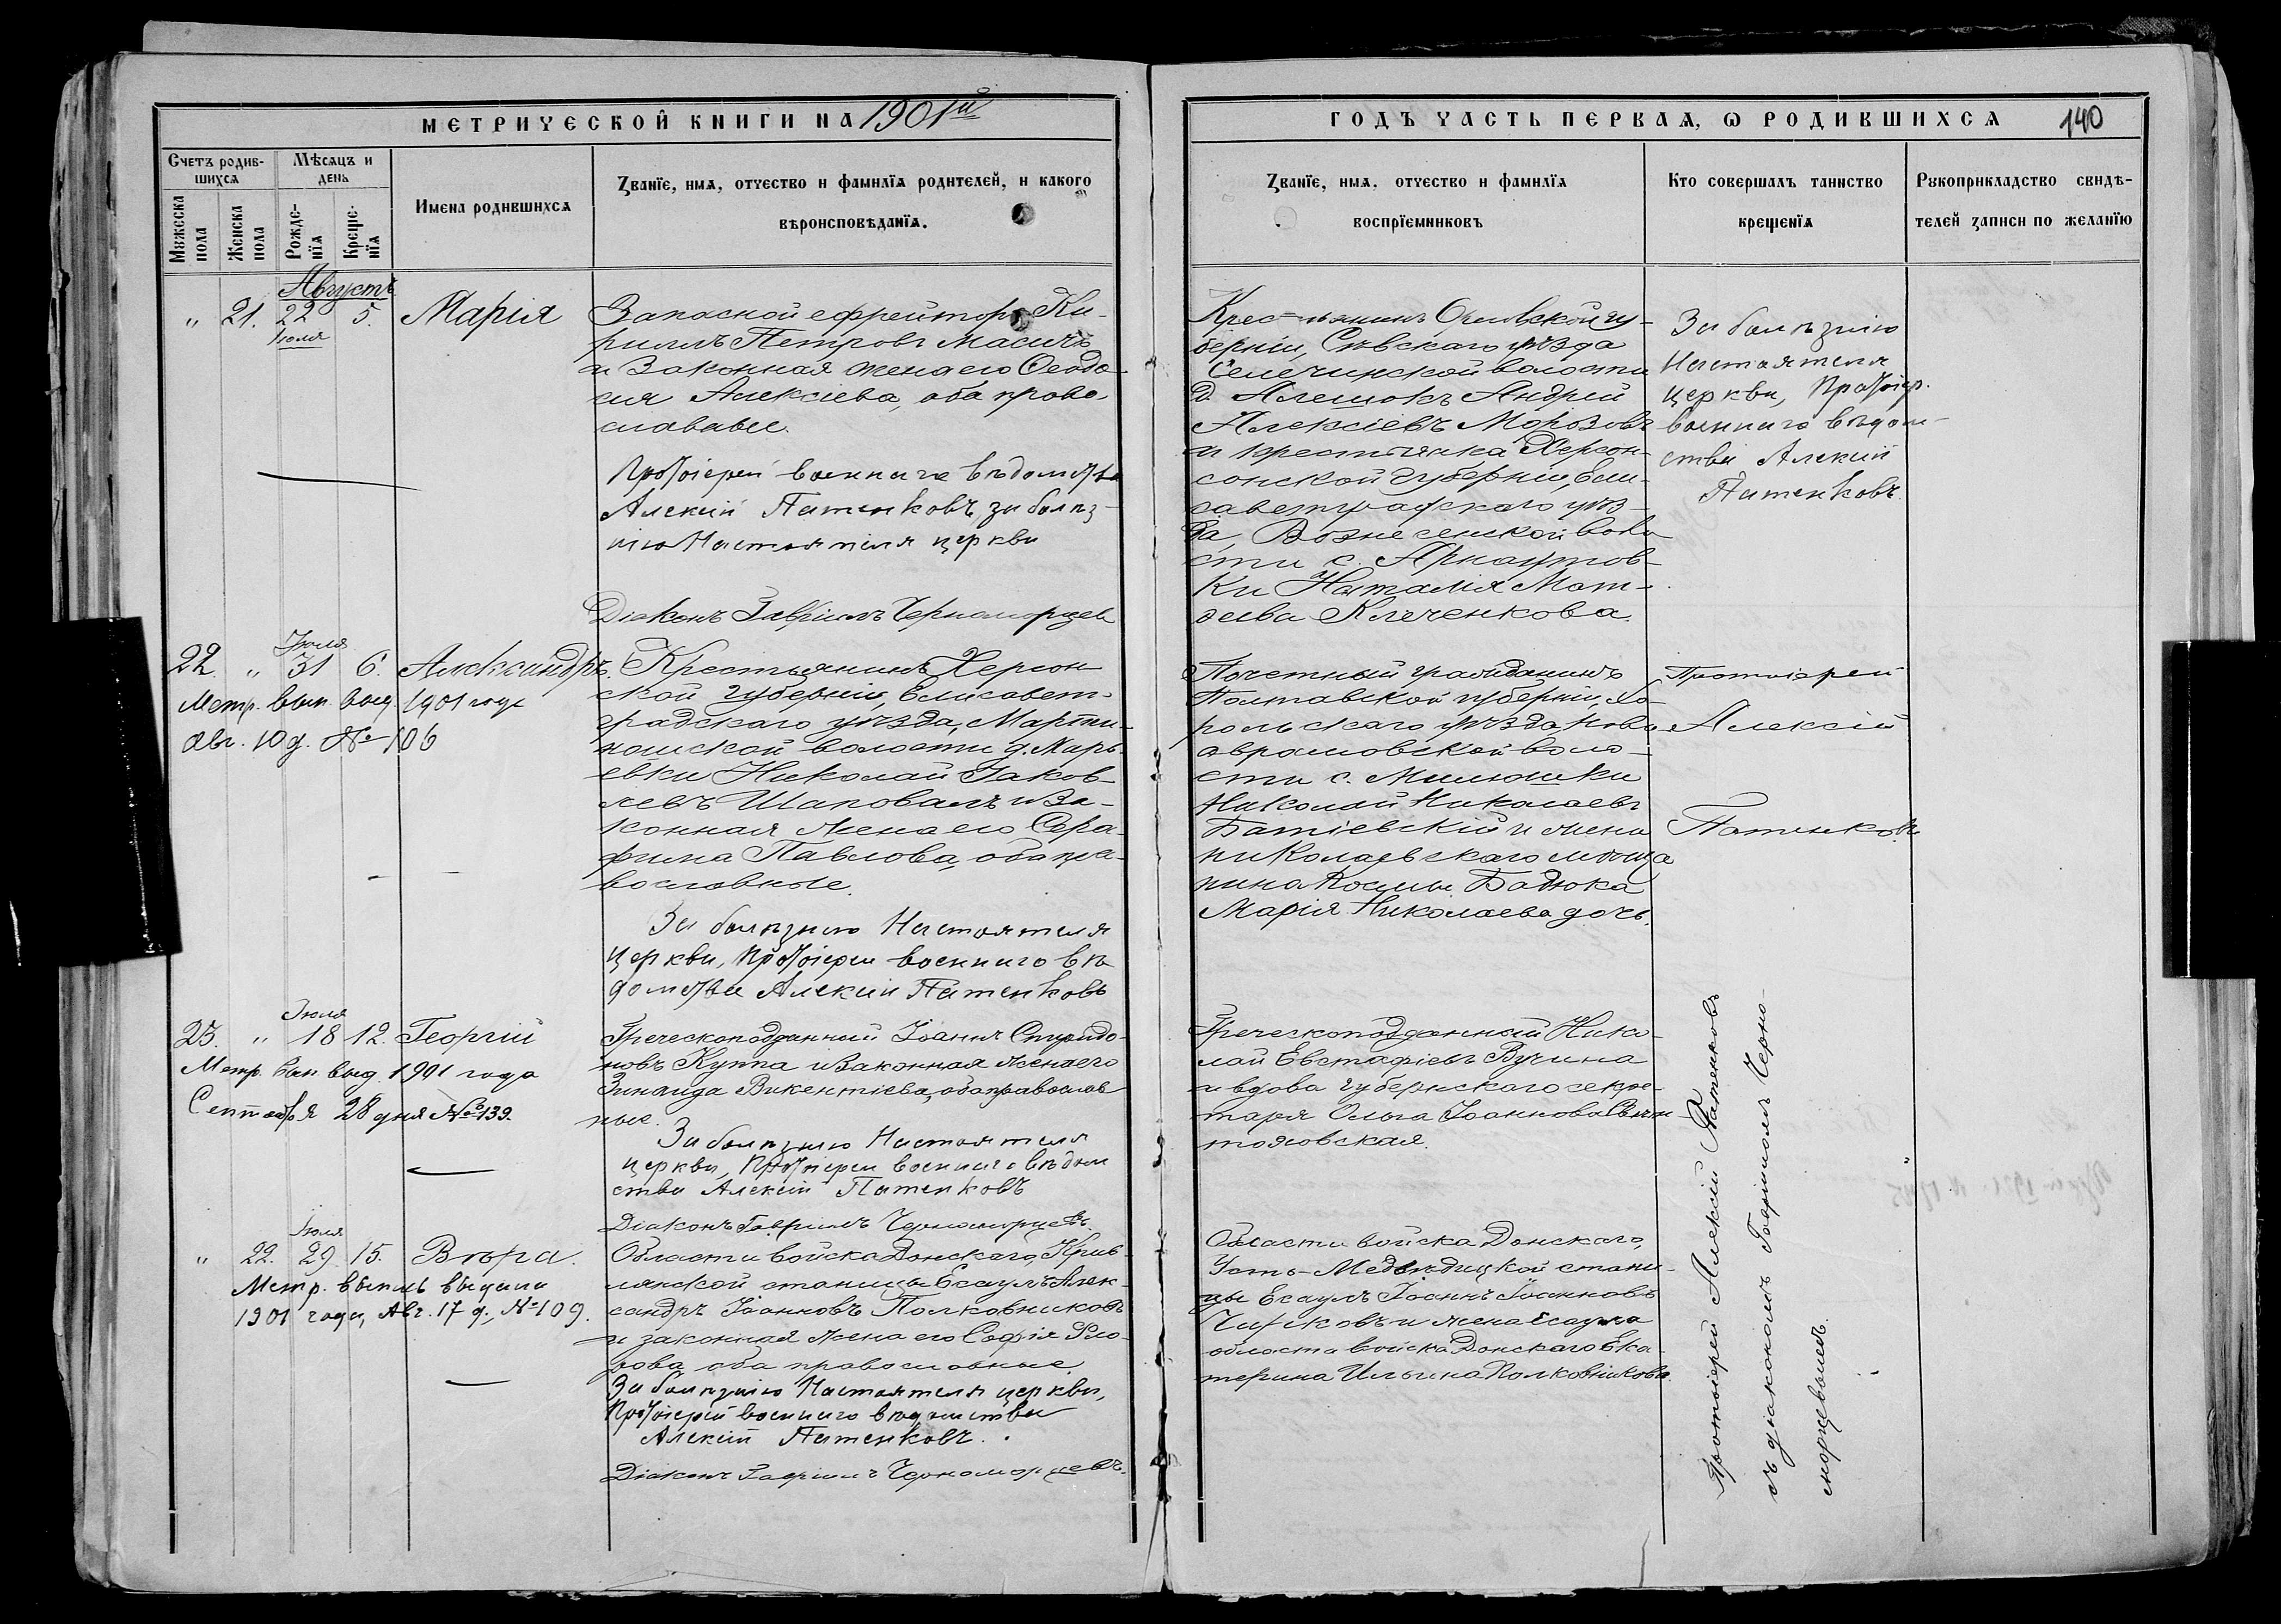 МЕТРИЧЕСКОЙ КНИГИ НА 1901й
ГОДЪ ЧАСТЬ ПЕРВАЯ, Ѡ РОДИВШИХСЯ
140
Счетъ родив-
шихся
Мѣсяцъ и
день
Мужеска
пола
Женска
пола
Рожде-
нїя
Креще-
нїя
Имена родившихся
Званїе, имя, отчество и фамилїя родителей, и какого
вѣроисповѣданїя.
Званїе, имя, отчество и фамилїя
воспрїемниковъ
Кто совершалъ таинство
крещенїя
Рукоприкладство свидѣ-
телей записи по желанїю
Августъ
" 21. 22 5. Марія
Іюля
Запасной ефрейторъ Ки-
риллъ Петровъ Масичъ
и Законная жена его Ѳеодо-
сия Алексіева, оба право-
славные.
Протоіерей военнаго вѣдомства
Алексій Патенковъ, за болѣз-
нію Настоятеля церкви
Діаконъ Гавріилъ Черноморцевъ
Крестьянинъ Орловской гу-
берніи, Сѣвскаго уѣзда
Селечинской волости
д. Алешокъ Андрей
Алексіевъ Морозовъ
и крестьянка Херсон-
сонской губерніи, Ели-
саветградскаго уѣз-
да, Вознесенской воло-
сти с. Арнаутов-
ки Наталія Мат-
ѳеева Клеченкова.
За болѣзнію
Настоятеля
церкви, Протоіер.
военнаго вѣдом-
ства Алексій
Патенковъ.
Іюля
22. " 31 6. Александръ.
Метр. вып. выд. 1901 года
Авг. 10 д. № 106
Крестьянинъ Херсон
ской губерніи, Елисавет-
градскаго уѣзда, Марти-
ношской волости д. Марь-
евки Николай Іаков-
левъ Шаповалъ и За-
конная жена его Сера-
фима Павлова, оба пра-
вославные.
За болѣзнію Настоятеля
церкви, Протоіерей военнаго вѣ
домства Алексій Патенковъ
Почетный гражданинъ
Полтавской губерніи, Хо-
рольскаго уѣзда, Ново
аврамовской воло-
сти с. Милюшки
Николай Николаевъ
Батіевскій и жена
николаевскаго мѣща
нина Космы Бадюка
Марія Николаева дочь.
Протоіерей
Алексій
Патенковъ
Іюля
23. " 18 12. Георгій
Метр. вып. выд. 1901 года
Сентября 28 дня № 139.
Греческоподданный Іоаннъ Спиридо-
новъ Куппа и Законная жена его
Зинаида Викентіева, оба православ
ные.
За болѣзнію Настоятеля
церкви, Протоіерей военнаго вѣдом
ства Алексій Патенковъ
Діаконъ Гавріилъ Черноморцевъ.
Греческоподданный Нико-
лай Евстафіевъ Вучина
и вдова губернскаго секре-
таря Ольга Іоаннова
Іюля
" 22. 29. 15. Вѣра.
Метр. выпись выдана
1901 года, Авг. 17 д., № 109.
Области войска Донскаго, Крив-
лянской станицы Есаулъ Алек-
сандръ Іоанновъ Полковниковъ
и законная жена его Софія Фло-
рова, оба православные
За болѣзнію Настоятеля церкви,
Протоіерей военнаго вѣдомства
Алексій Патенковъ.
Діаконъ Гавріилъ Черноморцевъ.
Области войска Донскаго,
Усть-Медвѣдицкой стани-
цы Есаулъ Іоаннъ Іоанновъ
и жена Есаула
области войска Донскаго Ека-
терина Ильина Полковникова.
Протоіерей Алексій Патенковъ
съ діакономъ Гавріиломъ Черно-
морцевымъ.